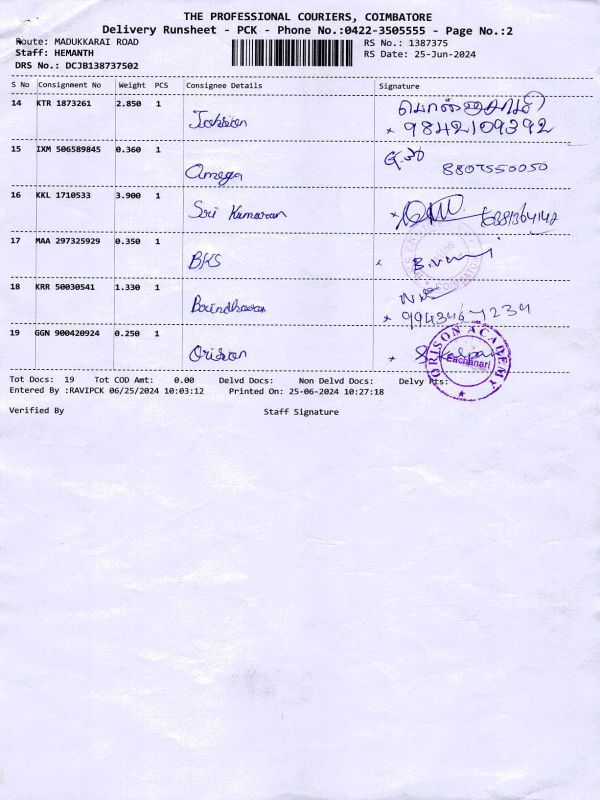 THE PROFESSIONAL COURIERS, COIMBATORE
Delivery Runsheet - PCK - Phone No.:0422-3505555 - Page No.:2
Route: MADUKKARAI ROAD RS No.: 1387375
Staff: HEMANTH RS Date: 25-Jun-2024
DRS No.: DCJB138737502
S No Consignment No Weight PCS Consignee Details Signature
14 KTR 1873261 2.850 1
× 9842109392
15 IXM 506589845 0.360 1
Omega 8807550050
16 KKL 1710533 3.900 1
Sri Kumaran
17 MAA 297325929 0.350 1
BKS
18 KRR 50030541 1.330 1
× 9943467234
19 GGN 900420924 0.250 1
Orison
ORISON ACADEMY
Eachanari
Tot Docs: 19 Tot COD Amt: 0.00 Delvd Docs: Non Delvd Docs: Delvy Pts:
Entered By :RAVIPCK 06/25/2024 10:03:12 Printed On: 25-06-2024 10:27:18
Verified By Staff Signature